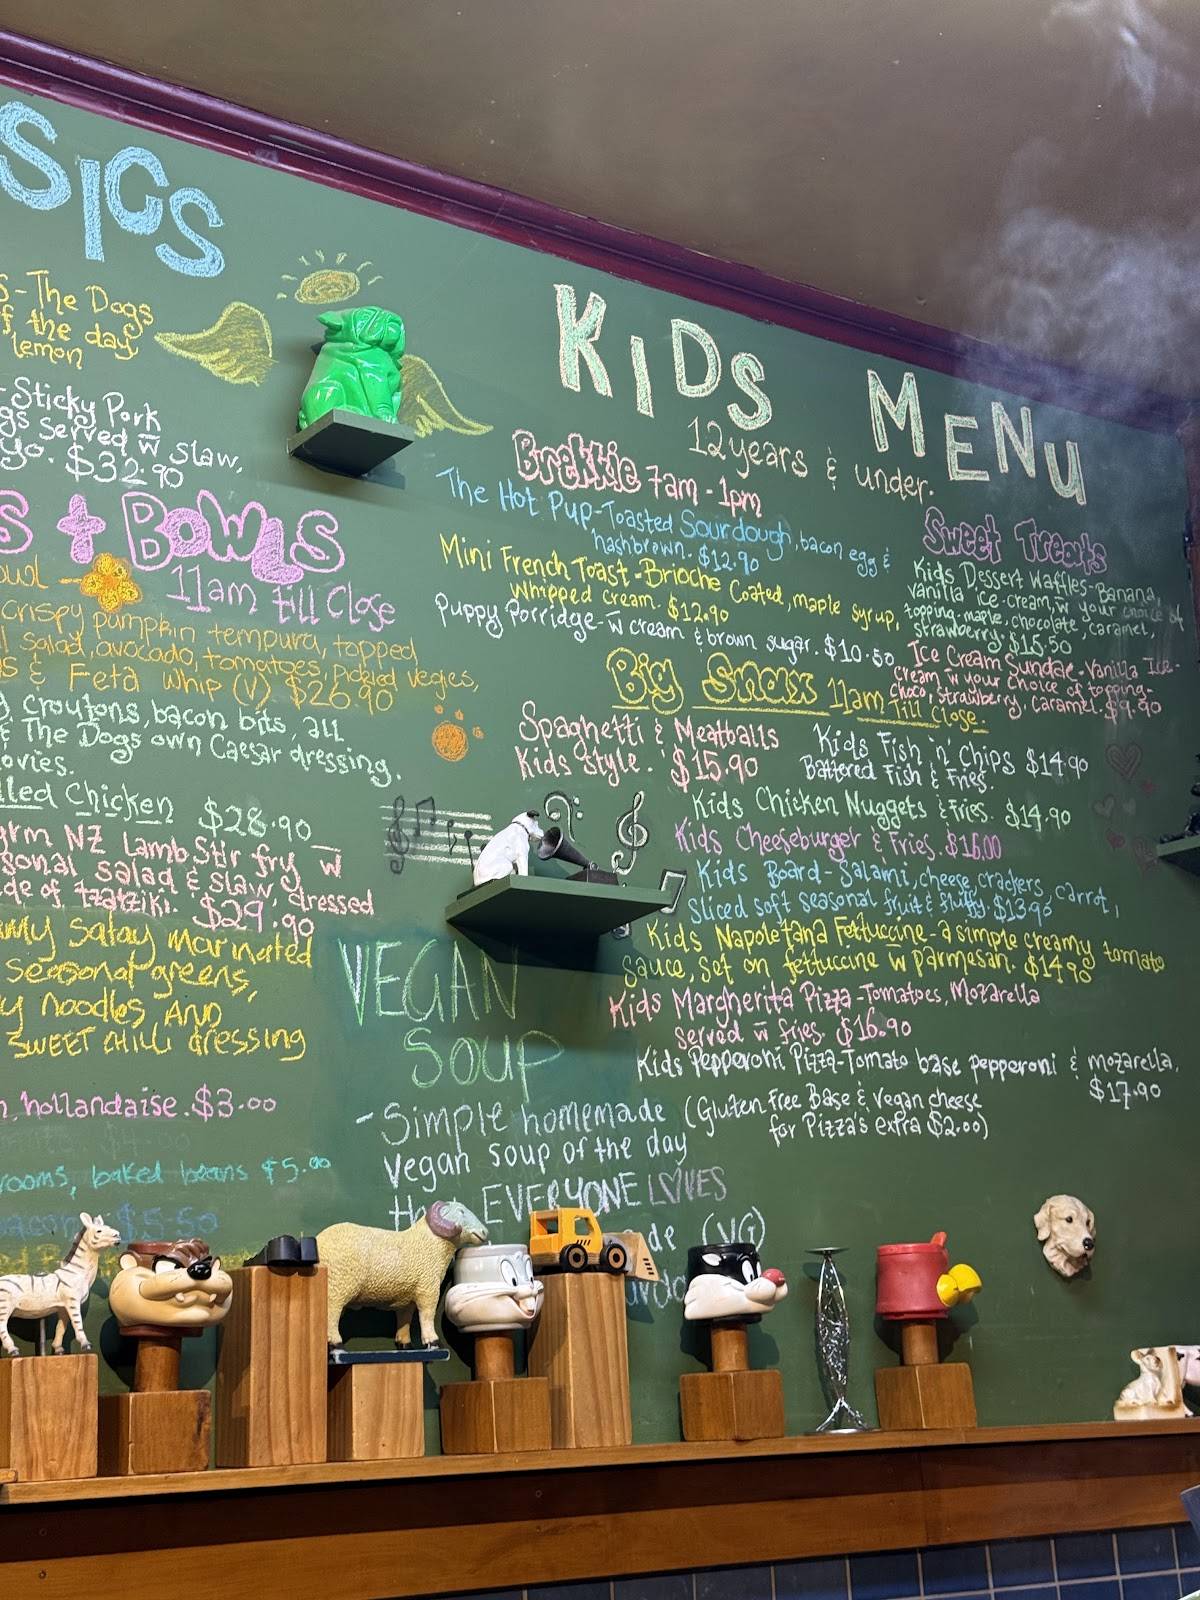 SICS
S-The Dogs
f the day
lemon
-Sticky Pork
gs served w̄ slaw,
yo. $32.90
S + BOWLS
11am till Close
owl -
crispy pumpkin tempura, topped
l salad, avocado, tomatoes, pickled vegies,
s & Feta whip (V). $26.90
croutons, bacon bits, all
The Dogs own Caesar dressing.
ovies.
lled Chicken $28.90
arm NZ Lamb Stir fry w̄
sonal salad & slaw, dressed
de of tzatziki. $29.90
amy satay marinated
seasonal greens,
y noodles AND
SWEET CHILLI dressing
hollandaise. $3.00
$4.00
rooms, baked beans $5.00
bacon $5.50
VEGAN
SOUP
- Simple homemade
vegan soup of the day
EVERYONE LOVES
de (VG)
KIDS MENU
12 years & under.
Brekkie 7am - 1pm
The Hot Pup-Toasted Sourdough, bacon egg &
hashbrown. $12.90
Mini French Toast-Brioche Coated, maple syrup,
Whipped cream. $12.90
Puppy Porridge- w̄ cream & brown sugar. $10.50
Big Snax 11am Till Close.
Spaghetti & Meatballs
Kids style. $15.90
Kids Fish 'n' Chips $14.90
Battered Fish & Fries.
Kids Chicken Nuggets & fries. $14.90
Kids Cheeseburger & Fries. $16.00
Kids Board-Salami, cheese, crackers, carrot,
Sliced soft seasonal fruit & fluffy. $13.90
Kids Napoletana Fettuccine-a simple creamy tomato
sauce, set on fettuccine w̄ parmesan. $14.90
Kids Margherita Pizza-Tomatoes, Mozarella
served w̄ fries. $16.90
Kids Pepperoni Pizza-Tomato base pepperoni & mozarella.
$17.90
(Gluten free Base & vegan cheese
for Pizza's extra $2.00)
Sweet Treats
Kids Dessert Waffles-Banana,
vanilla ice-cream, w̄ your choice of
topping-maple, chocolate, caramel,
strawberry. $15.50
Ice Cream Sundae-Vanilla Ice-
cream w̄ your choice of topping-
choco, strawberry, caramel. $9.90